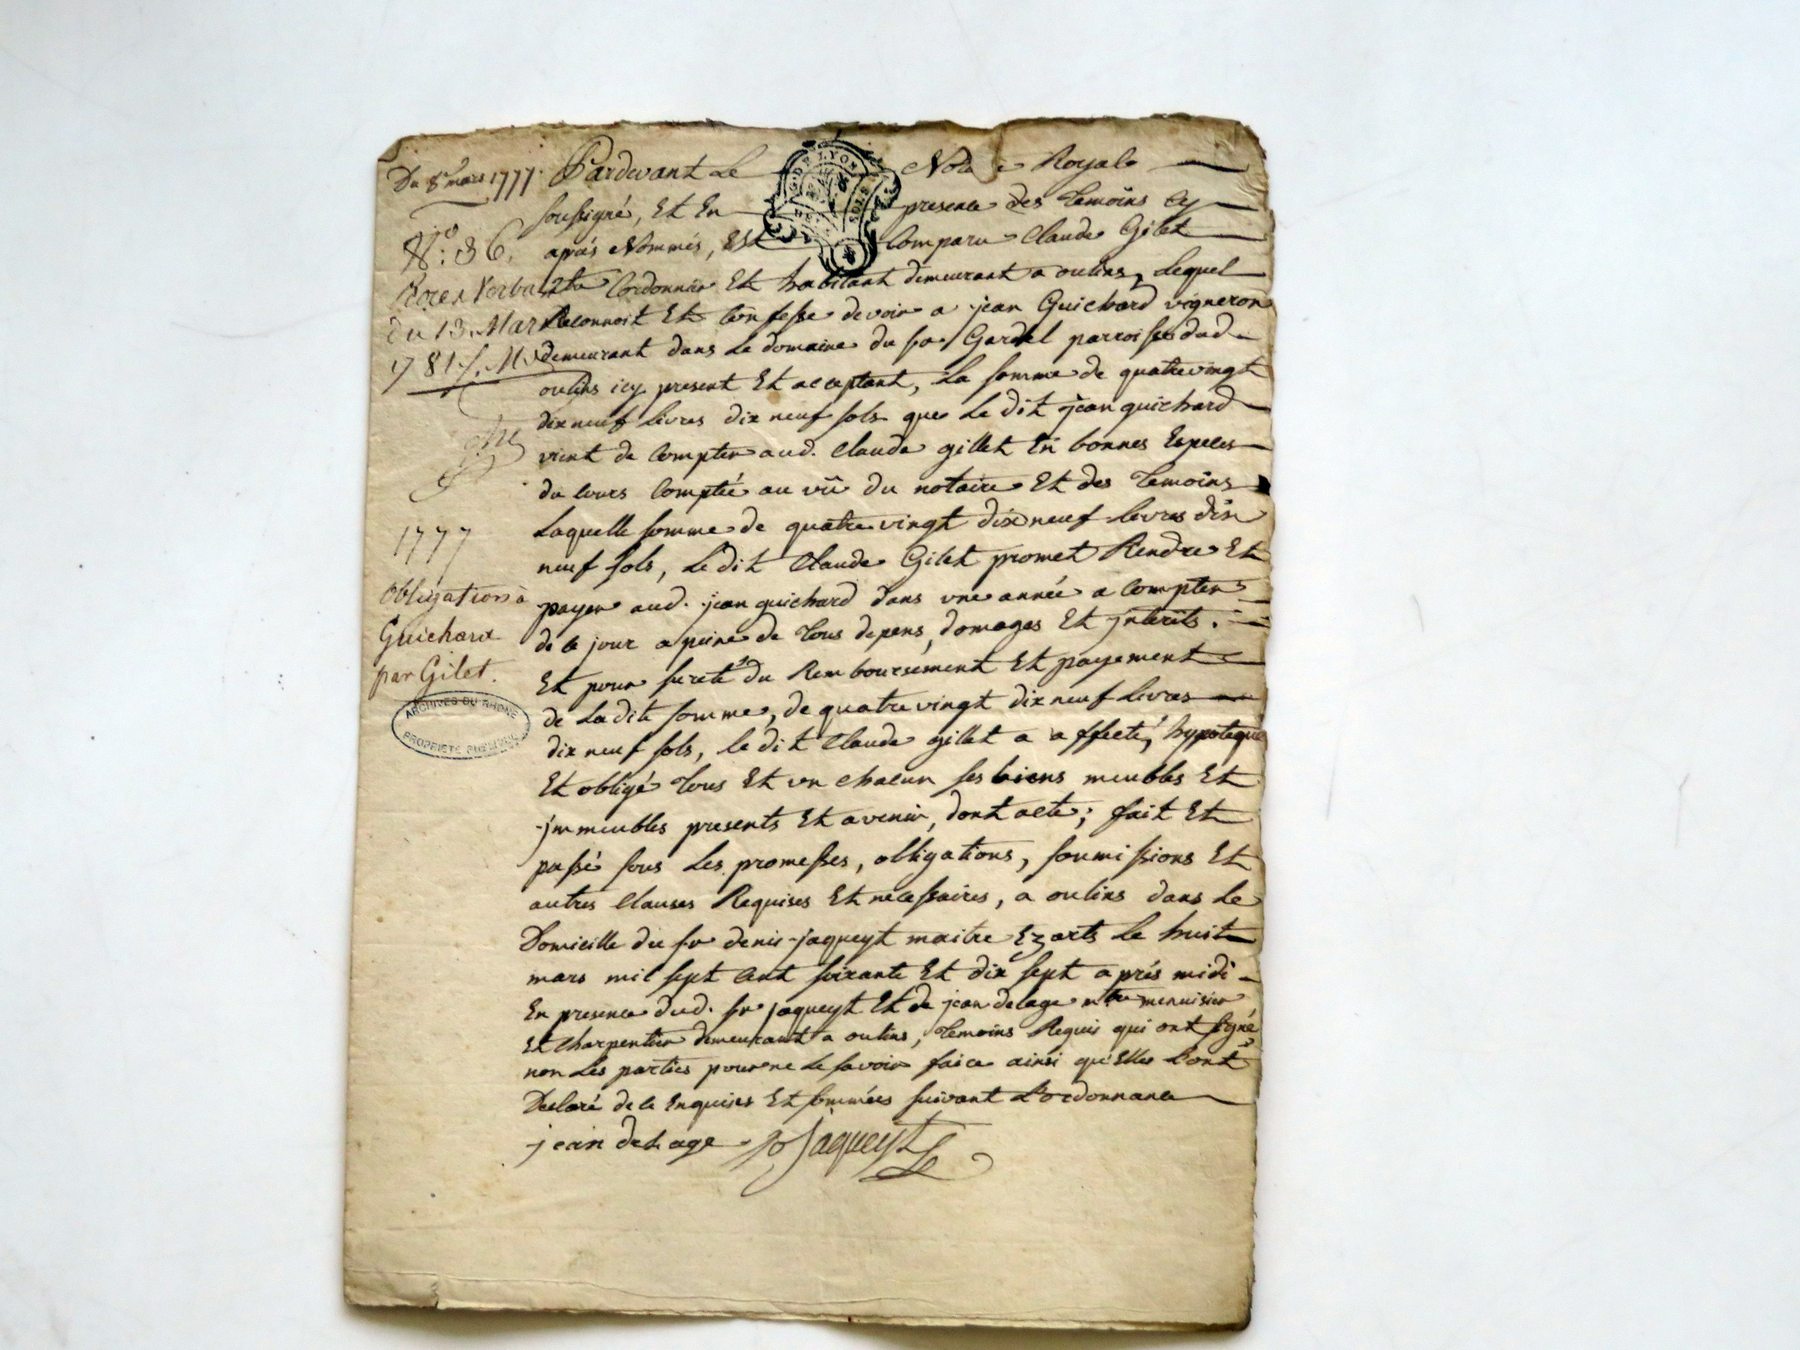 Du 8e mars 1777.
N.o: 36.
du 13. Mars
1781
1777
Obligation à
Guichard
par Gilet.
ARCHIVES DU RHONE
PROPRIETE PUBLIQUE
G. DE LYON
Pardevant Le Notaire Royal
soussigné, Et En presence des Temoins Cy
aprés Nommés, Est Comparu Claude Gilet
Cordonnier Et habitant demeurant a oulins, Lequel
Reconnoit Et Confesse devoir a jean Guichard vigneron
demeurant dans Le domaine du sr Gardel parroisse dud.
oulins icy present Et acceptant, La somme de quatrevingt
dix neuf Livres dix neuf sols que Le dit jean guichard
vient de Compter aud. Claude gillet En bonnes Especes
du Cours Comptée au vû du notaire Et des Temoins
Laquelle somme de quatre vingt dix neuf Livres dix
neuf sols, Le dit Claude Gilet promet Rendre Et
payer aud. jean guichard dans une année a Compter
de Ce jour a peine de Tous depens, domages Et jnterets.
Et pour sureté du Remboursement Et payement
de La dite somme, de quatre vingt dix neuf Livres
dix neuf sols, le dit Claude gillet a affecté, hypotequé
Et obligé Tous Et un chacun ses biens meubles Et
jmmeubles presents Et avenir, dont acte; fait Et
passé sous Les promesses, obligations, soumissions Et
autres Clauses Requises Et necessaires, a oulins dans Le
Domicille du sr denis jaqueyt maitre Ez arts Le huit
mars mil sept Cent soixante Et dix sept aprés midi
En presence dud. sr jaqueyt Et de jean delage mtre menuisier
Et Charpentier demeurant a oulins, Temoins Requis qui ont signé
non Les parties pour ne Le savoir faire ainsi qu'Elles L'ont
Declaré de Ce Enquises Et sommées suivant L'ordonnance
jean deLage Jaqueyt